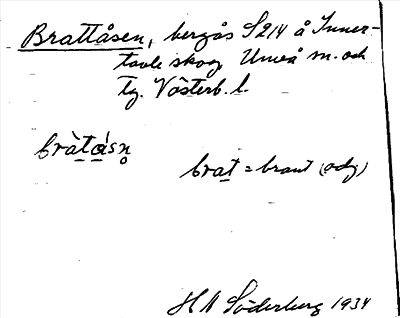 Brattåsen, bergås S214 å Inner-
tavle skog Umeå m. och
tg. Västerb. l.
bràtásn̥
brat = brant (adj)
H N Söderberg 1934